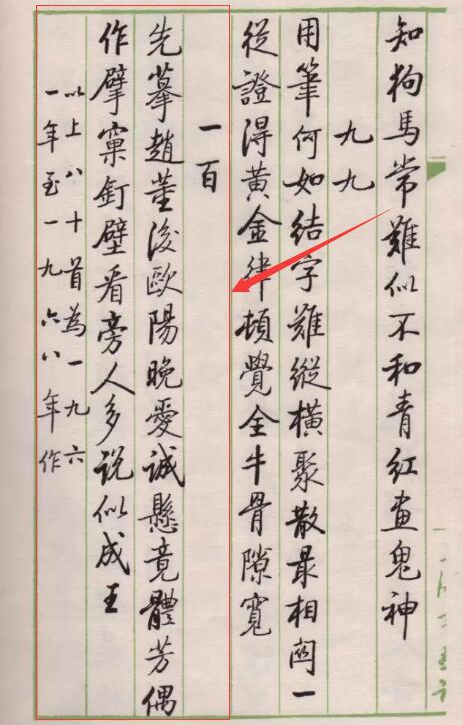 知狗馬常難似不和青紅畫鬼神
九九
用筆何如結字難縱橫聚散最相関一
從證得黃金律頓覺全牛骨隙寬
一百
先摹趙董後歐陽晚愛誠懸竟體芳偶
作擘窠釘壁看旁人多说似成王
以上八十首為一九六
一年至一九六八年作